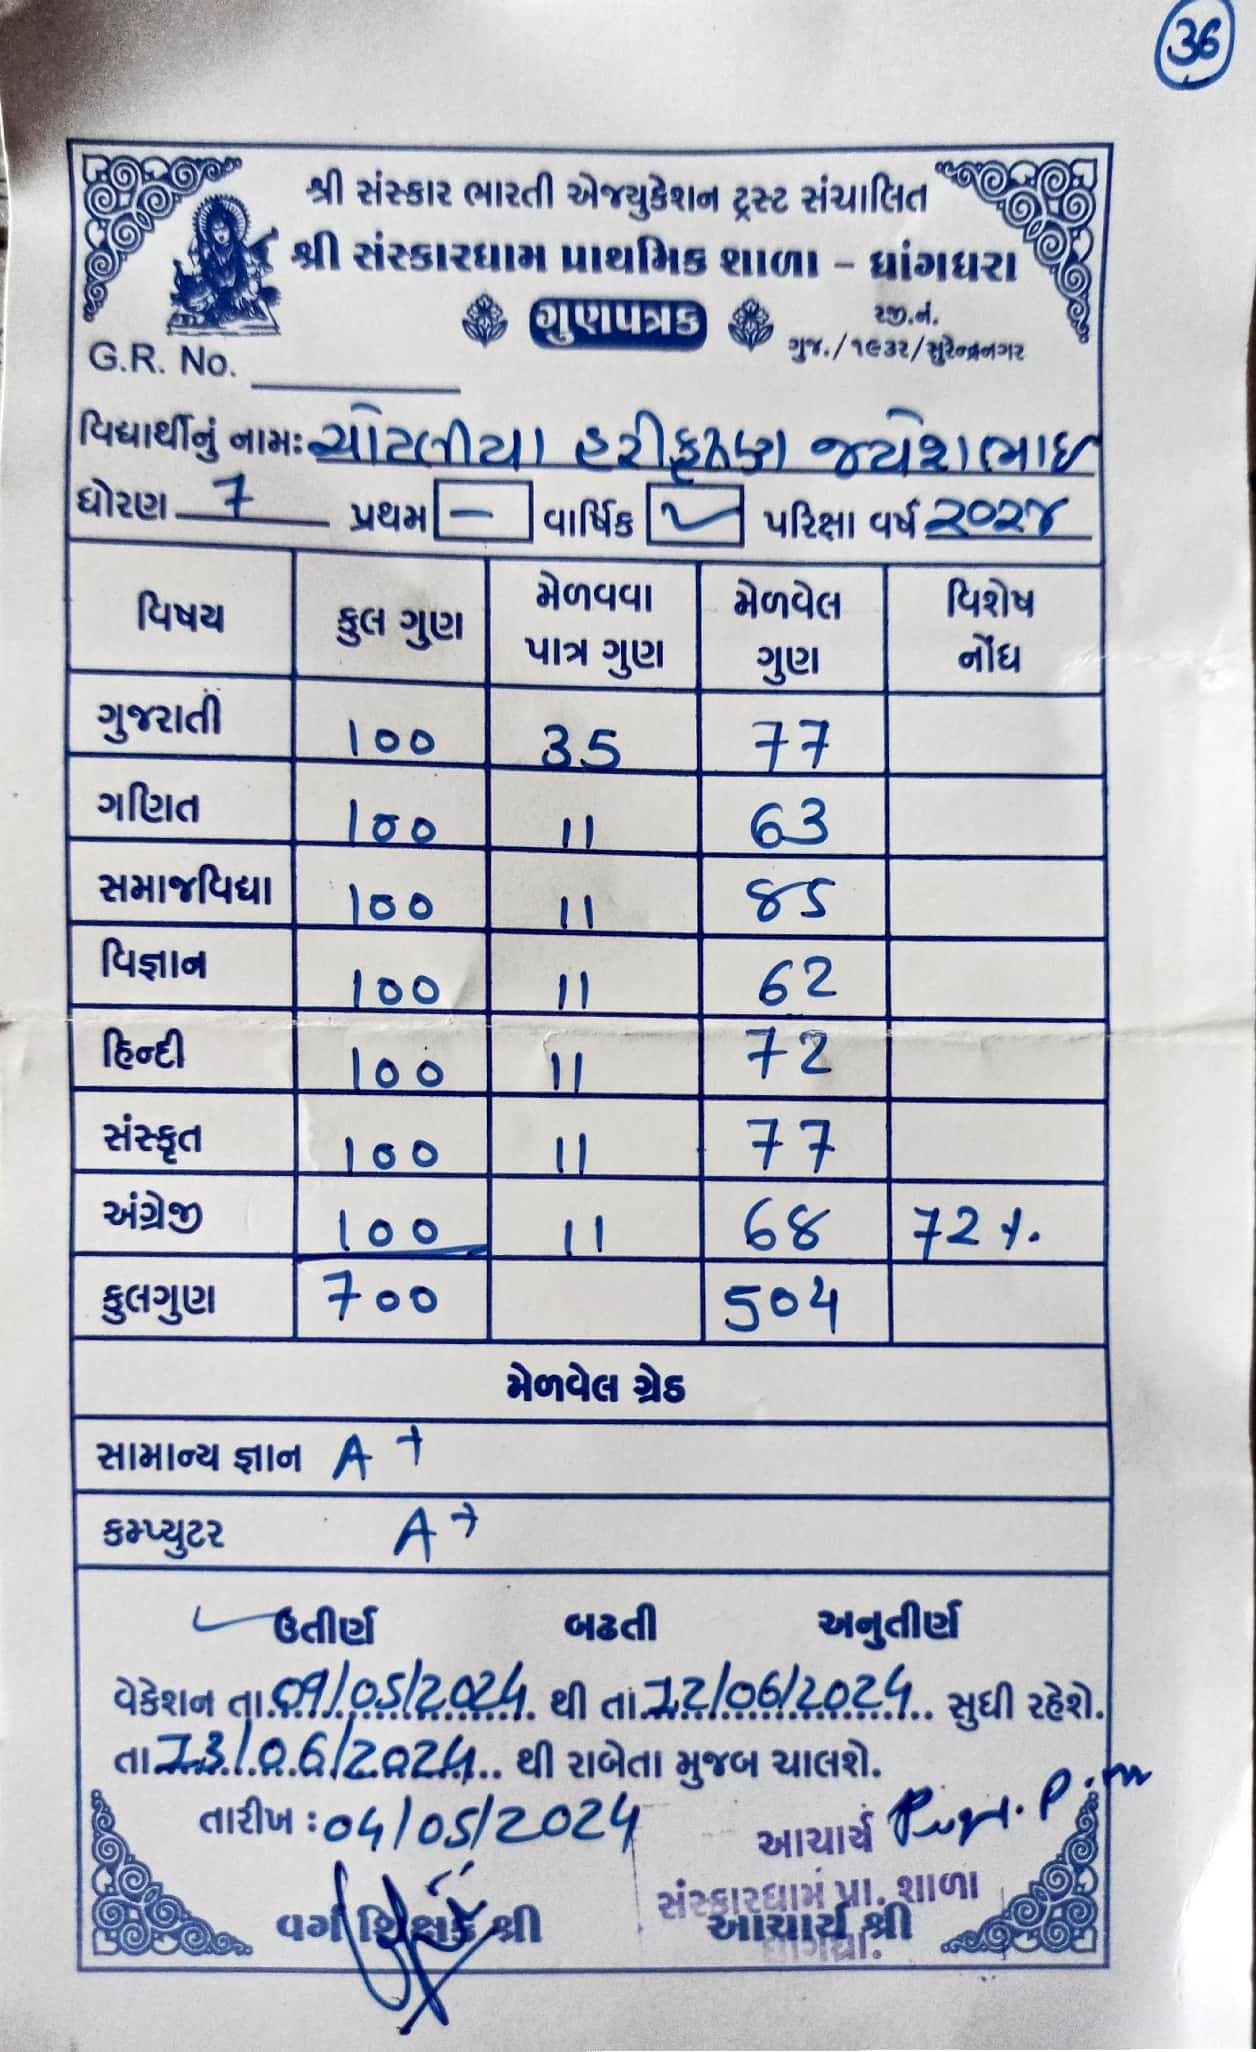 36
શ્રી સંસ્કાર ભારતી એજ્યુકેશન ટ્રસ્ટ સંચાલિત
શ્રી સંસ્કારધામ પ્રાથમિક શાળા - ધ્રાંગધરા
ગુણપત્રક
રજી.નં.
ગુજ./૧૯૩૨/સુરેન્દ્રનગર
G.R. No.
વિદ્યાર્થીનું નામઃ ચોટલીયા હરીકૃષ્ણ જયેશભાઇ
ધોરણ 7 પ્રથમ - વાર્ષિક ✓ પરિક્ષા વર્ષ ૨૦૨૪
વિષય કુલ ગુણ મેળવવા પાત્ર ગુણ મેળવેલ ગુણ વિશેષ નોંધ
ગુજરાતી 100 35 77
ગણિત 100 11 63
સમાજવિદ્યા 100 11 85
વિજ્ઞાન 100 11 62
હિન્દી 100 11 72
સંસ્કૃત 100 11 77
અંગ્રેજી 100 11 68 72%
કુલગુણ 700 504
મેળવેલ ગ્રેડ
સામાન્ય જ્ઞાન A+
કમ્પ્યુટર A+
✓ ઉતીર્ણ બઢતી અનુતીર્ણ
વેકેશન તા.09/05/2024. થી તા.12/06/2024.. સુધી રહેશે.
તા.13/06/2024.. થી રાબેતા મુજબ ચાલશે.
તારીખ : 04/05/2024
આચાર્ય
સંસ્કારધામ પ્રા. શાળા
વર્ગ શિક્ષક શ્રી આચાર્ય શ્રી